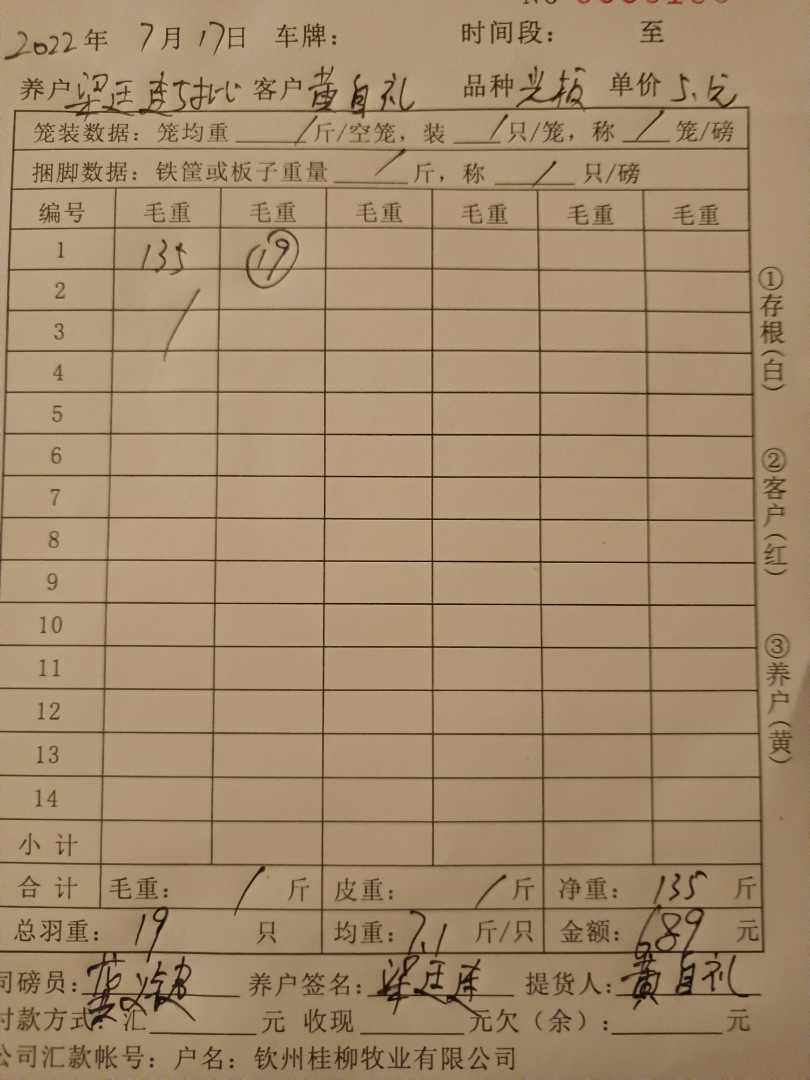 2022年 7月17日 车牌： 时间段： 至
养户 梁廷 客户 黄自礼 品种 光板 单价 5.元
笼装数据：笼均重 / 斤/空笼，装 / 只/笼，称 / 笼/磅
捆脚数据：铁筐或板子重量 / 斤，称 / 只/磅
编号 毛重 毛重 毛重 毛重 毛重 毛重
1 135 19
2 /
3
4
5
6
7
8
9
10
11
12
13
14
小计
合计 毛重： / 斤 皮重： / 斤 净重： 135 斤
总羽重： 19 只 均重：7.1 斤/只 金额：689 元
司磅员： 养户签名：梁廷 提货人：黄自礼
付款方式：汇 元 收现 元欠（余）： 元
公司汇款帐号：户名：钦州桂柳牧业有限公司
①存根（白）
②客户（红）
③养户（黄）